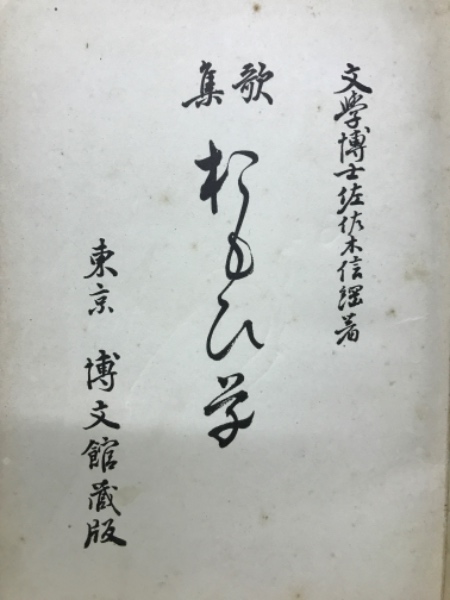 文學博士佐佐木信綱著
歌集
おもひ草
東京 博文館藏版